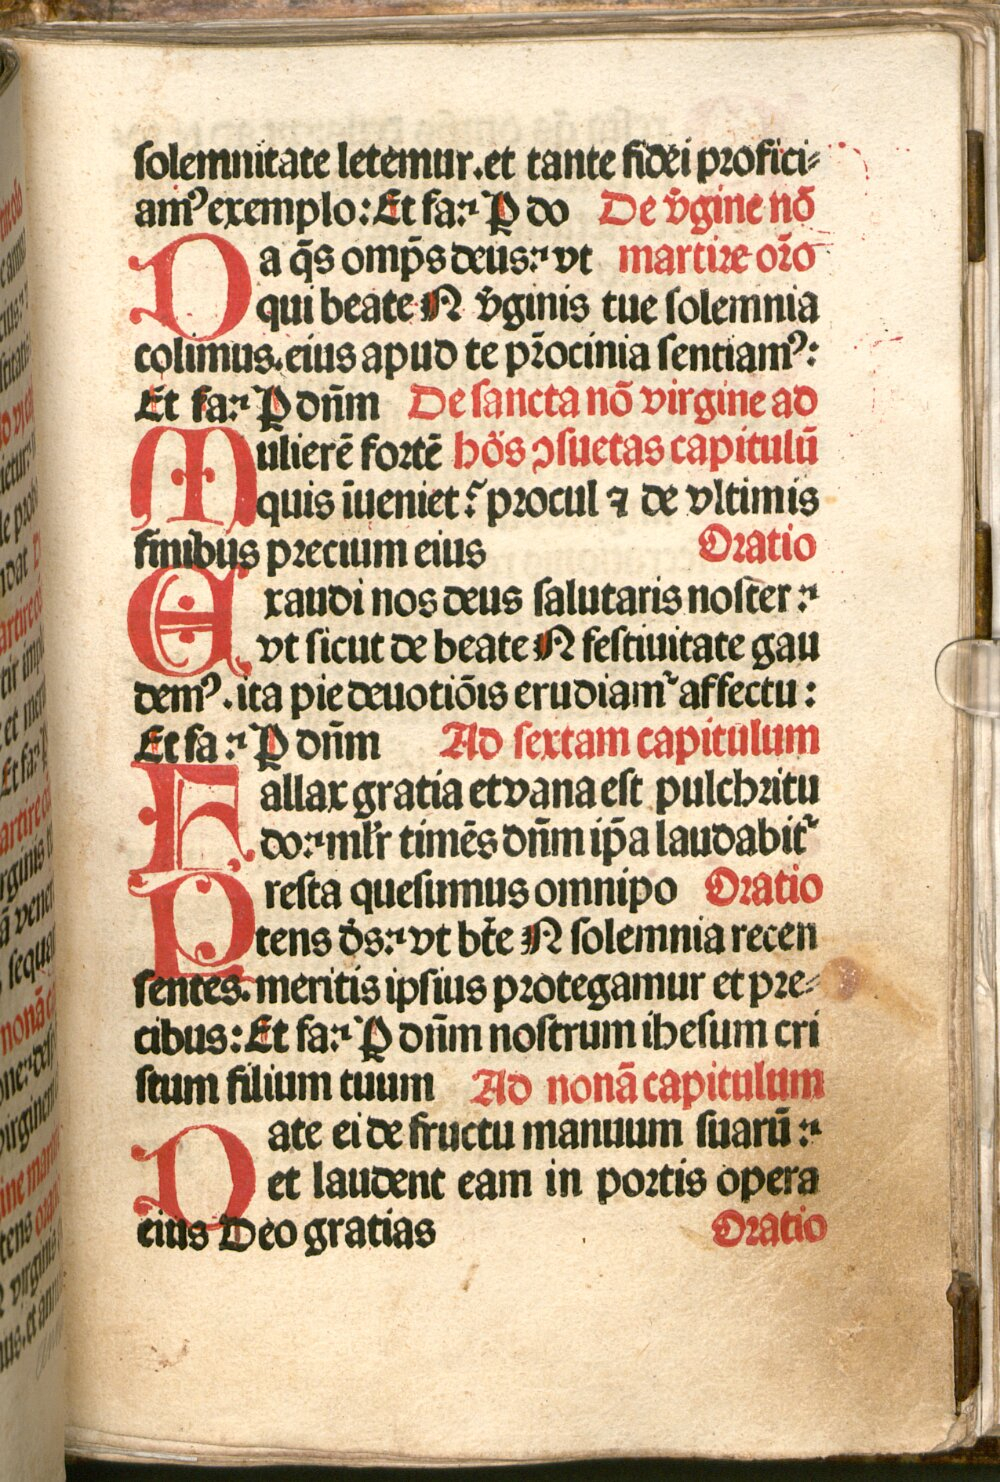 solemnitate letemur.et tante fidei profici⸗
amꝰ exemplo: Et fa:⁊ P do De v̄gine nō
Da q̄s omp̄s deus:⁊ vt martire or̄o
qui beate N v̄ginis tue solemnia
colimus.eius apud te pr̄ocinia sentiamꝰ:
Et fa:⁊ P dn̄m De sancta nō virgine ad
Mulierē fortē hōs ↄsuetas capitulū
quis īueniet? procul ⁊ de vltimis
finibus precium eius Oratio
Exaudi nos deus salutaris noster:⁊
vt sicut de beate N festiuitate gau
demꝰ.ita pie deuotiōis erudiam᷑ affectu:
Et fa:⁊ P dn̄m Ad sextam capitulum
Fallax gratia et vana est pulchritu
do:⁊ ml̄r timēs dn̄m ip̄a laudabit᷑
Presta quesumus omnipo Oratio
tens d̄s:⁊ vt bt̄e N solemnia recen
sentes.meritis ipsius protegamur et pre⸗
cibus: Et fa:⁊ P dn̄m nostrum ihesum cri
stum filium tuum Ad nonā capitulum
Date ei de fructu manuum suarū:⁊
et laudent eam in portis opera
eius Deo gratias Oratio